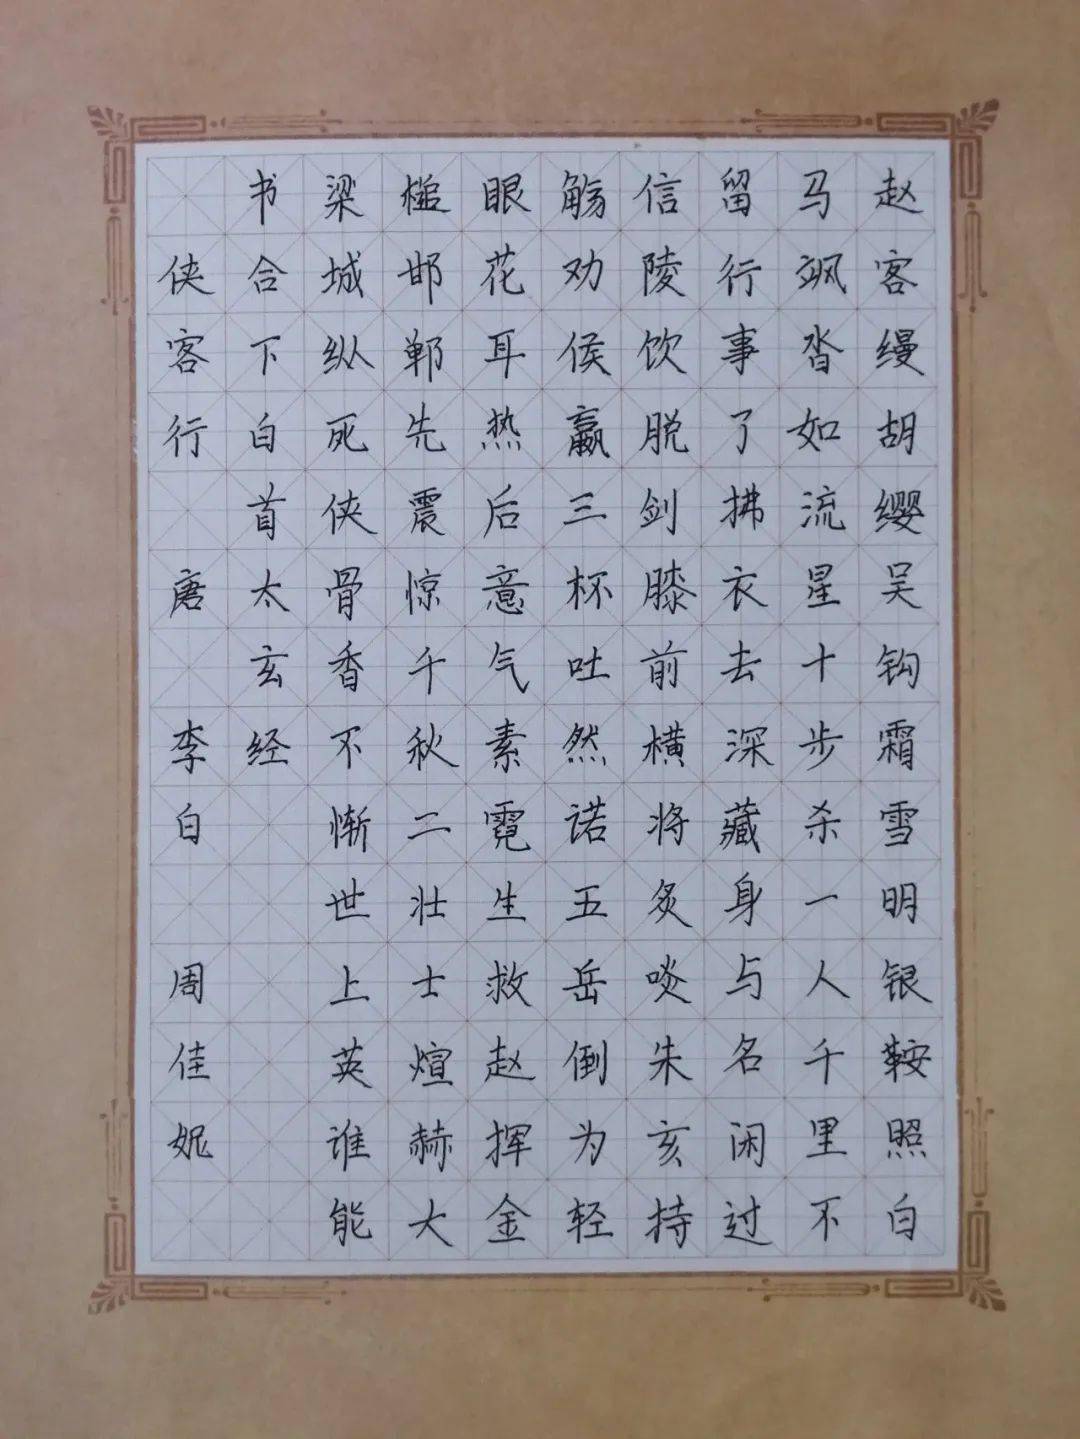 赵客缦胡缨吴钩霜雪明银鞍照白
马飒沓如流星十步杀一人千里不
留行事了拂衣去深藏身与名闲过
信陵饮脱剑膝前横将炙啖朱亥持
觞劝侯嬴三杯吐然诺五岳倒为轻
眼花耳热后意气素霓生救赵挥金
槌邯郸先震惊千秋二壮士煊赫大
梁城纵死侠骨香不惭世上英谁能
书合下白首太玄经
侠客行 唐 李白 周佳妮